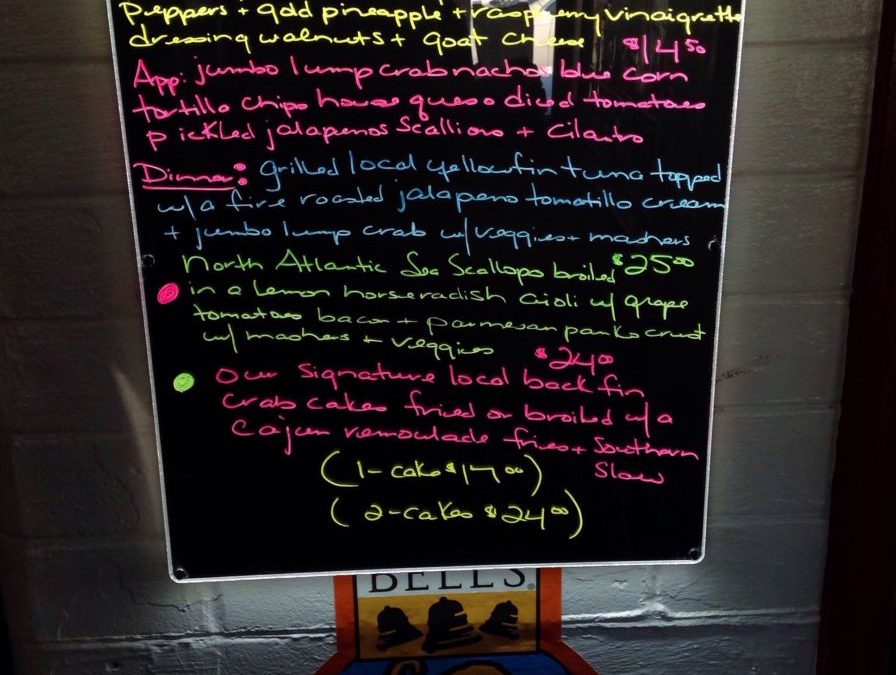 Peppers + gold pineapple + raspberry vinaigrette
dressing walnuts + goat cheese $14.50
App: jumbo lump crab nachos blue corn
tortilla chips house queso diced tomatoes
pickled jalapenos scallions + cilantro
Dinner: grilled local yellowfin tuna topped
w/a fire roasted jalapeno tomatillo cream
+ jumbo lump crab w/veggies + mashers
North Atlantic Sea Scallops broiled $25.00
in a lemon horseradish aioli w/ grape
tomatoes bacon + parmesan panko crust
w/ mashers + veggies $24.00
Our signature local back fin
crab cakes fried or broiled w/a
Cajun remoulade fries + Southern
Slaw
(1-cake $14.00)
(2-cakes $24.00)
BELL'S